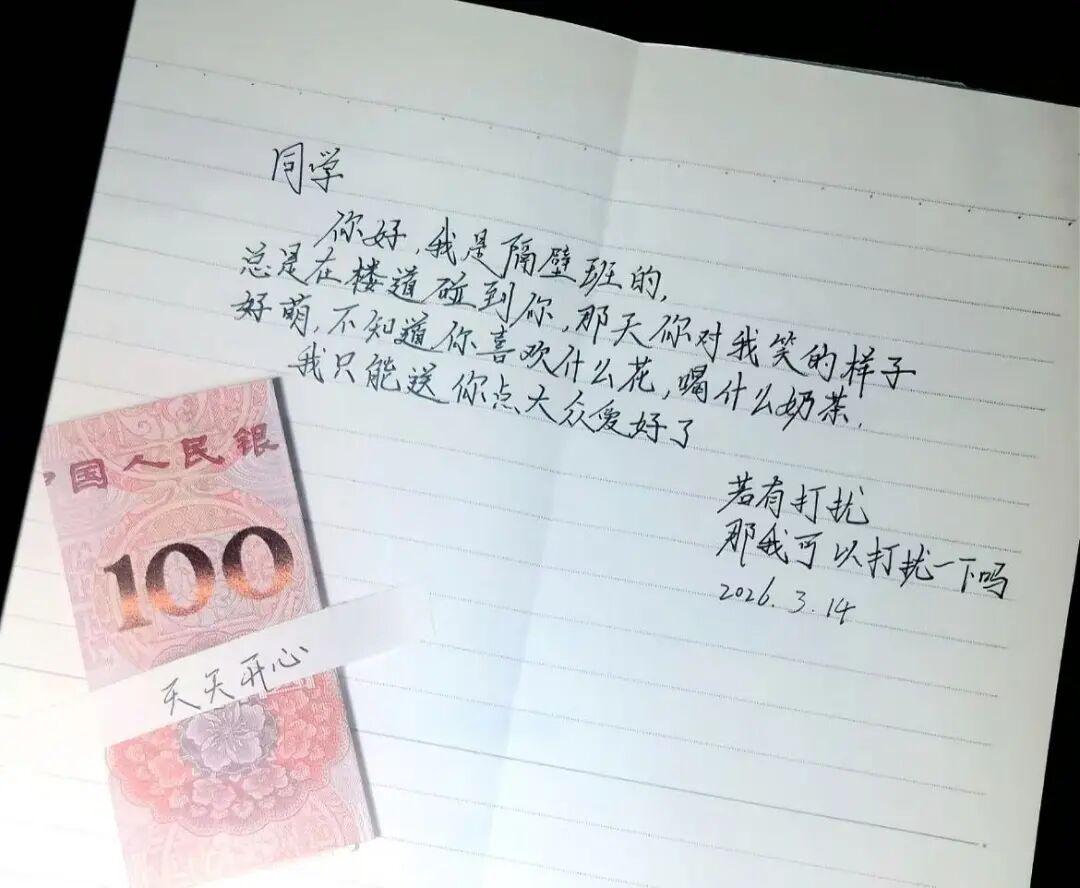 同学
你好,我是隔壁班的,
总是在楼道碰到你,那天你对我笑的样子
好萌,不知道你喜欢什么花,喝什么奶茶,
我只能送你点大众爱好了
若有打扰
那我可以打扰一下吗
2026.3.14
中国人民银
100
天天开心